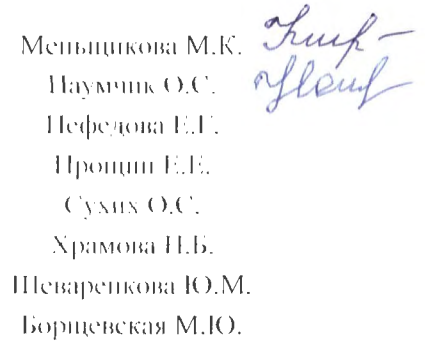 Меньщикова М.К.
Наумчик О.С.
Нефедова Е.Г.
Пронин Е.Е.
Сухих О.С.
Храмова Н.Б.
Шеваренкова Ю.М.
Борщевская М.Ю.